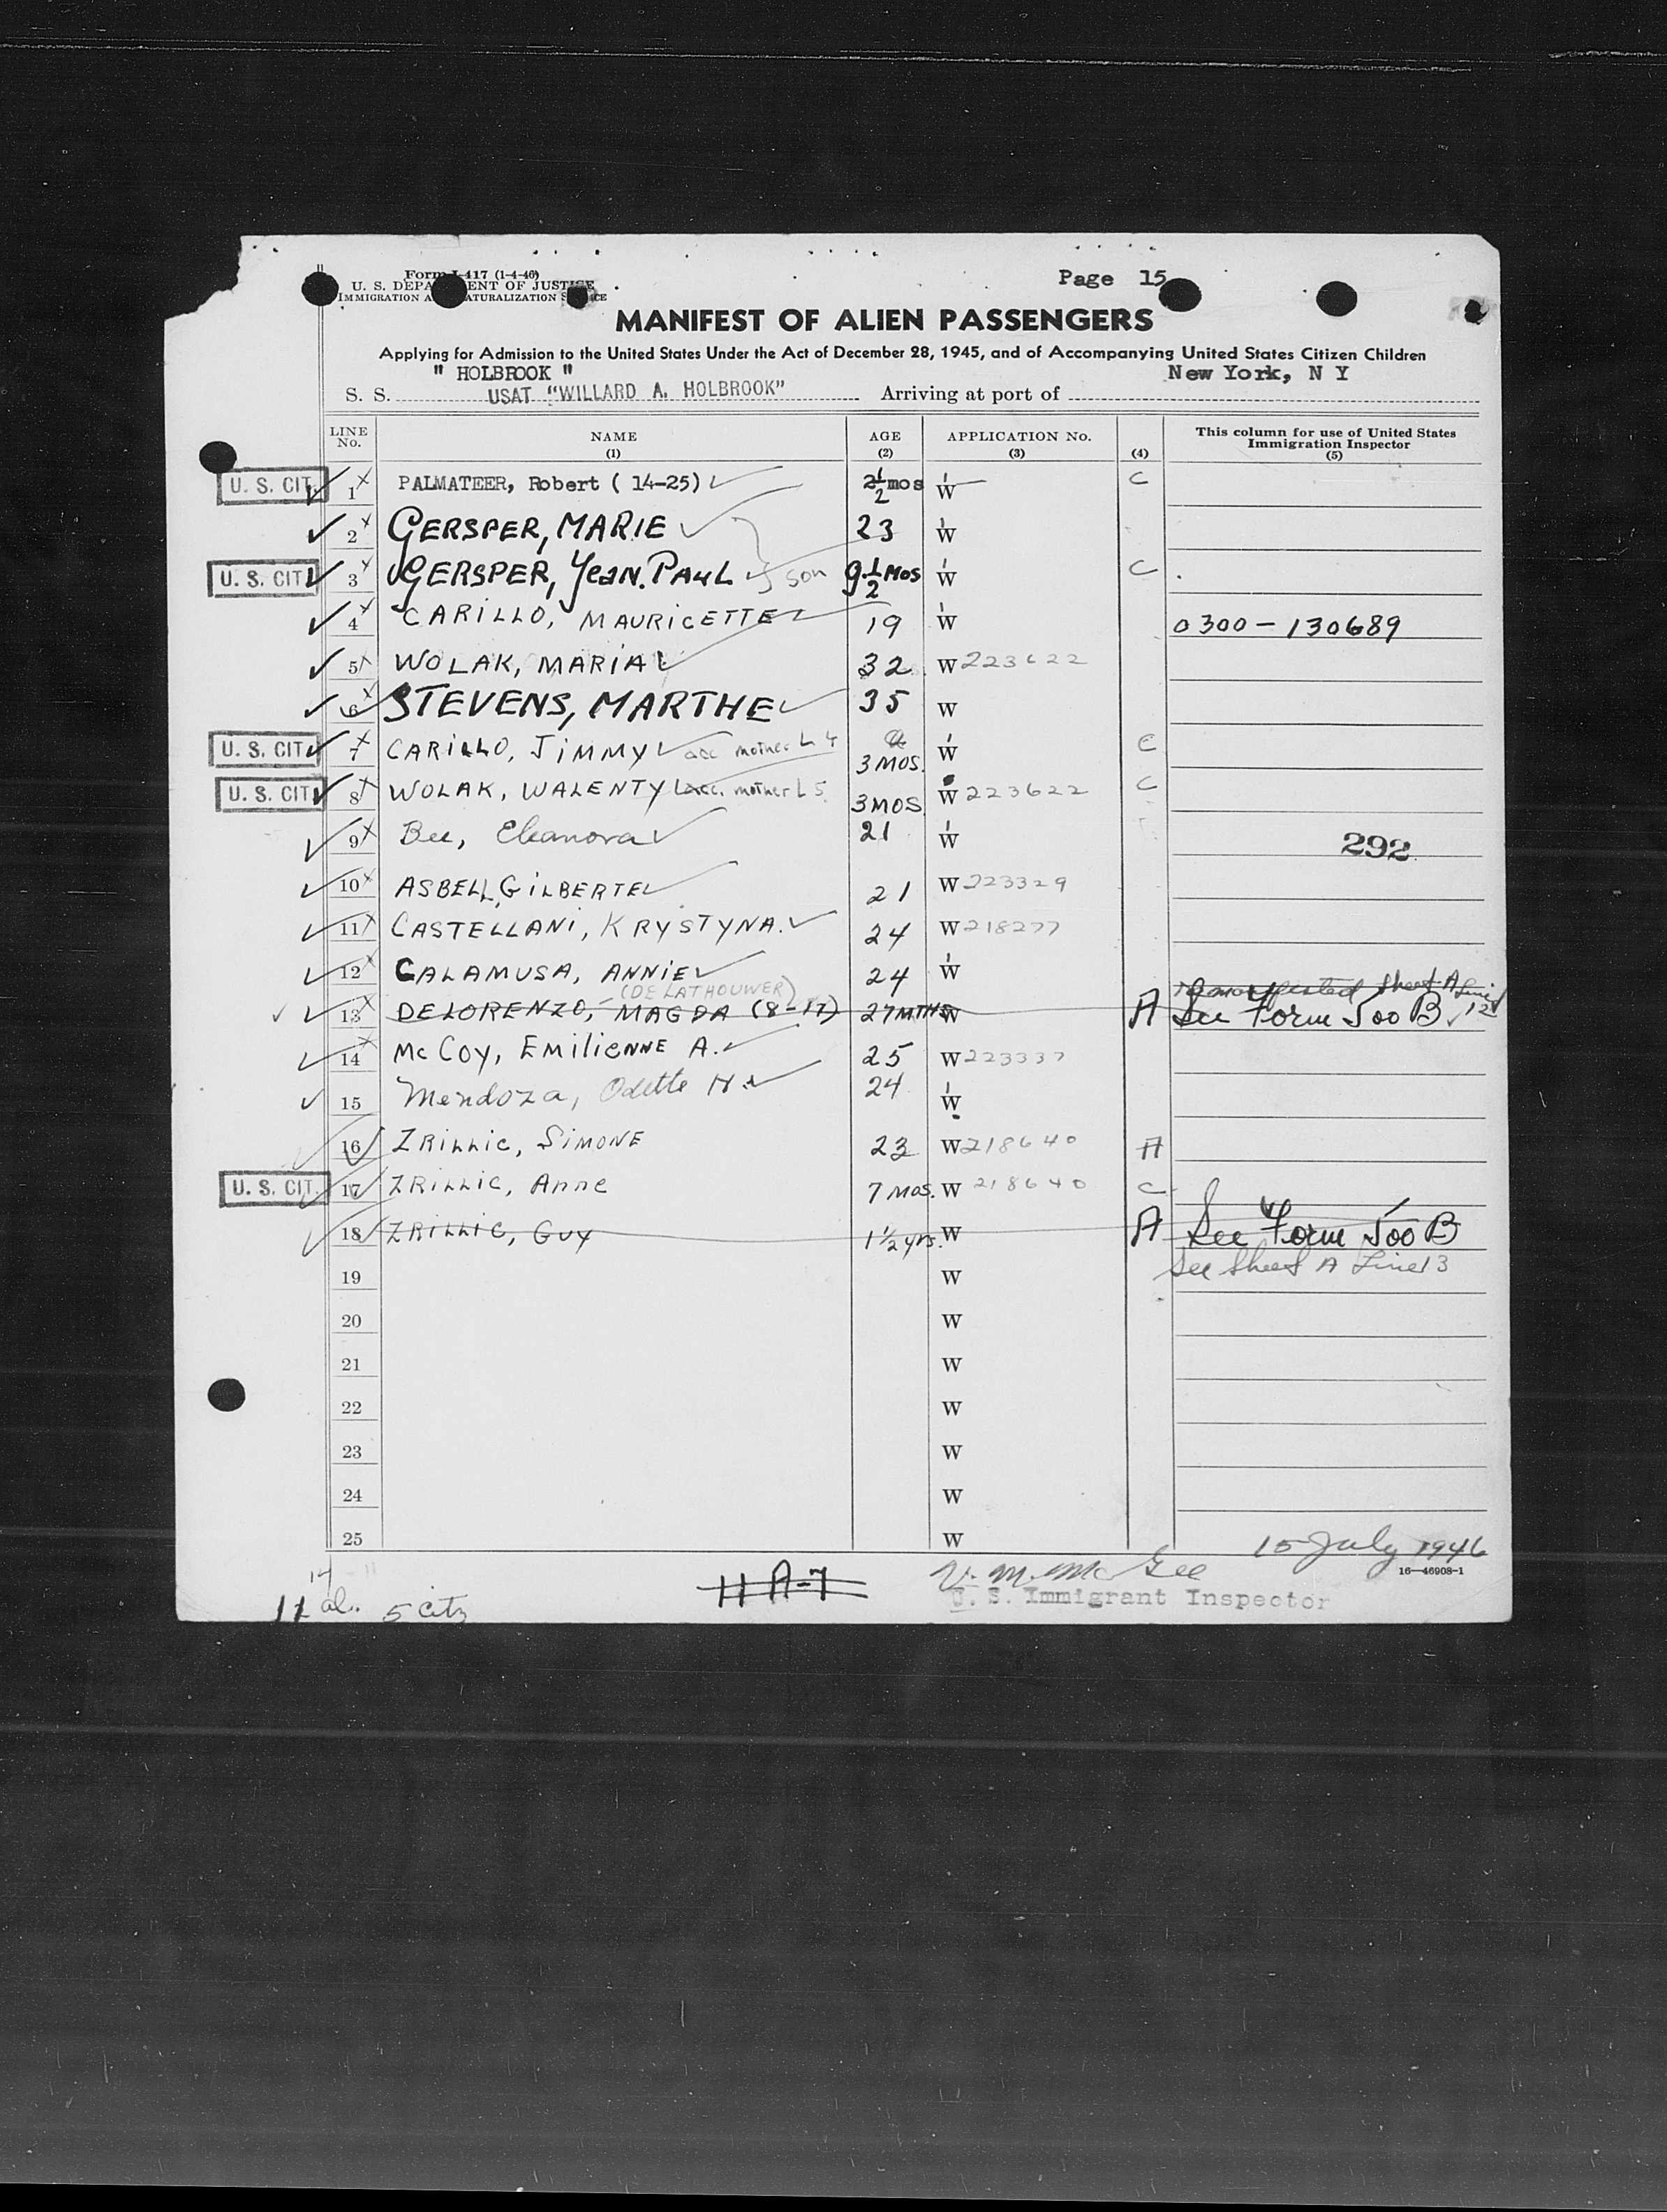 Form I-417 (1-4-46)
U. S. DEPARTMENT OF JUSTICE
IMMIGRATION AND NATURALIZATION SERVICE
Page 15
MANIFEST OF ALIEN PASSENGERS
Applying for Admission to the United States Under the Act of December 28, 1945, and of Accompanying United States Citizen Children
" HOLBROOK " New York, N Y
S. S. USAT "WILLARD A. HOLBROOK" Arriving at port of
LINE No. NAME (1) AGE (2) APPLICATION No. (3) (4) This column for use of United States Immigration Inspector (5)
U. S. CIT. 1 PALMATEER, Robert ( 14-25) 2½ mos W C
2 GERSPER, MARIE 23 W
U. S. CIT. 3 GERSPER, Yean. PAUL son 9½ Mos W C
4 CARILLO, MAURICETTE 19 W 0300-130689
5 WOLAK, MARIA 32 W 223622
6 STEVENS, MARTHE 35 W
U. S. CIT. 7 CARILLO, JIMMY acc mother L 4 3 MOS. W C
U. S. CIT. 8 WOLAK, WALENTY acc. mother L 5 3 MOS W 223622 C
9 Bee, Eleanora 21 W
292
10 ASBELL, GILBERTE 21 W 223329
11 CASTELLANI, KRYSTYNA. 24 W 218277
12 CALAMUSA, ANNIE 24 W
(DE LATHOUWER) Sheet A Line 12
13 DELORENZO, MAGDA (8-17) 27 MTHS W A See Form 500 B
14 Mc COY, EMILIENNE A. 25 W 223337
15 Mendoza, Odette H. 24 W
16 ZRILLIC, SIMONE 23 W 218640 A
U. S. CIT. 17 ZRILLIC, Anne 7 Mos. W 218640 C
18 ZRILLIC, GUY 1½ yrs. W A See Form 500 B
19 W See Sheet A Line 13
20 W
21 W
22 W
23 W
24 W
25 W
15 July 1946
16-46908-1
14
11 al. 5 citz 11 A-7 V. M. McGee
U. S. Immigrant Inspector